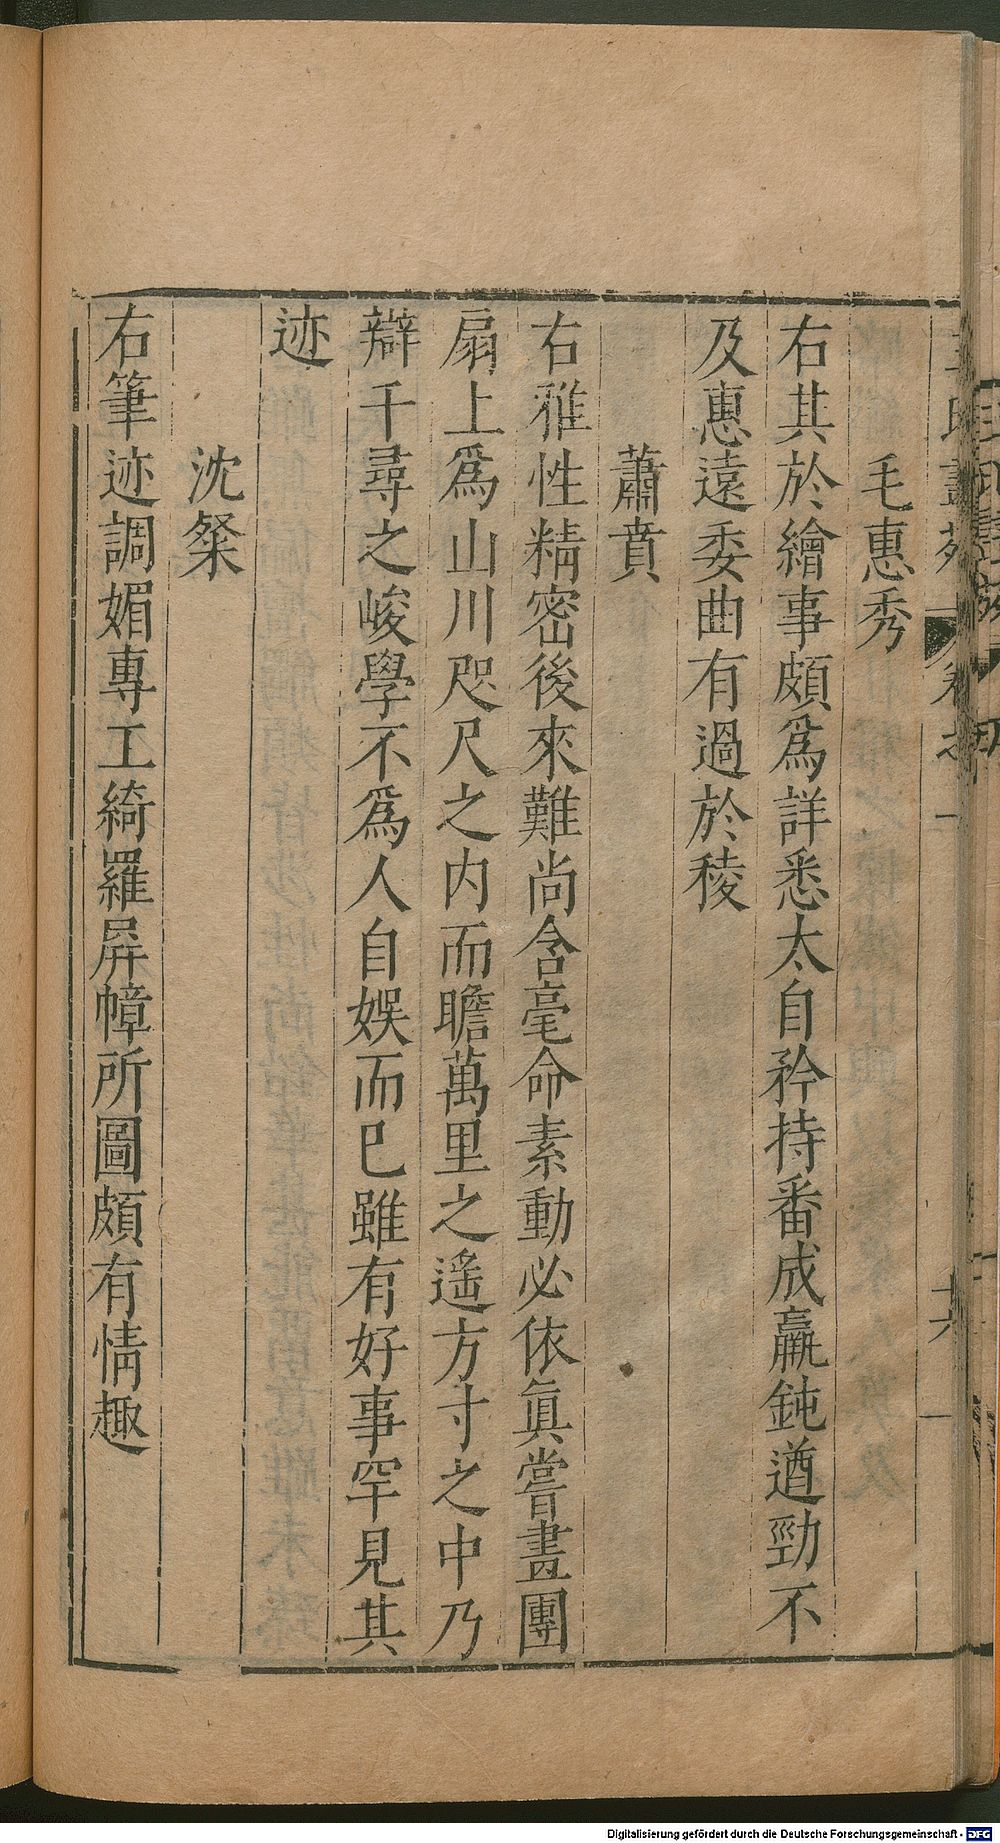 毛惠秀
右其於繪事頗爲詳悉太自矜持番成羸鈍遒勁不
及惠遠委曲有過於稜
蕭賁
右雅性精密後來難尚含毫命素動必依眞嘗畫團
扇上爲山川咫尺之内而瞻萬里之遙方寸之中乃
辯千尋之峻學不爲人自娛而已雖有好事罕見其
迹
沈粲
右筆迹調媚專工綺羅屏幛所圖頗有情趣
王氏畫苑 卷之一 十六
Digitalisierung gefördert durch die Deutsche Forschungsgemeinschaft - DFG